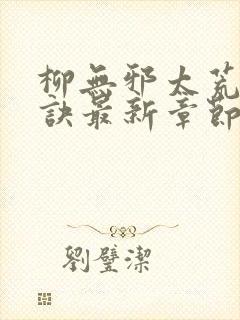 柳無邪太荒
訣最新章節
劉璧潔